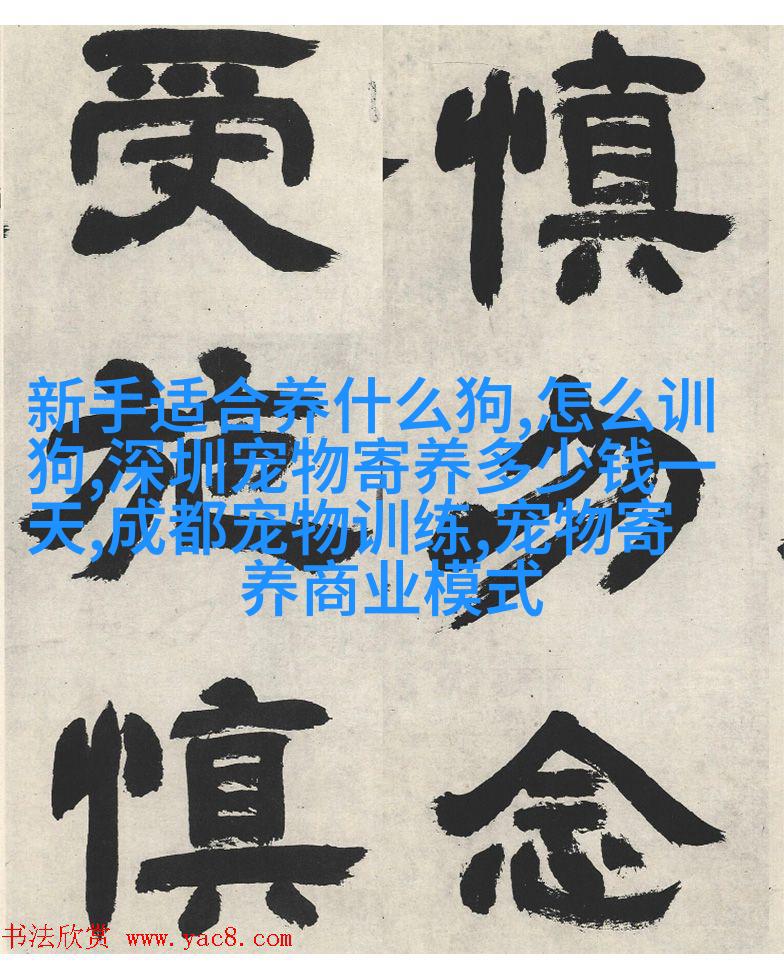 慎勿念
受施慎
新手适合养什么狗,怎么训
狗,深圳宠物寄养多少钱一
天,成都宠物训练,宠物寄
养商业模式
书法欣赏 www.yac8.com